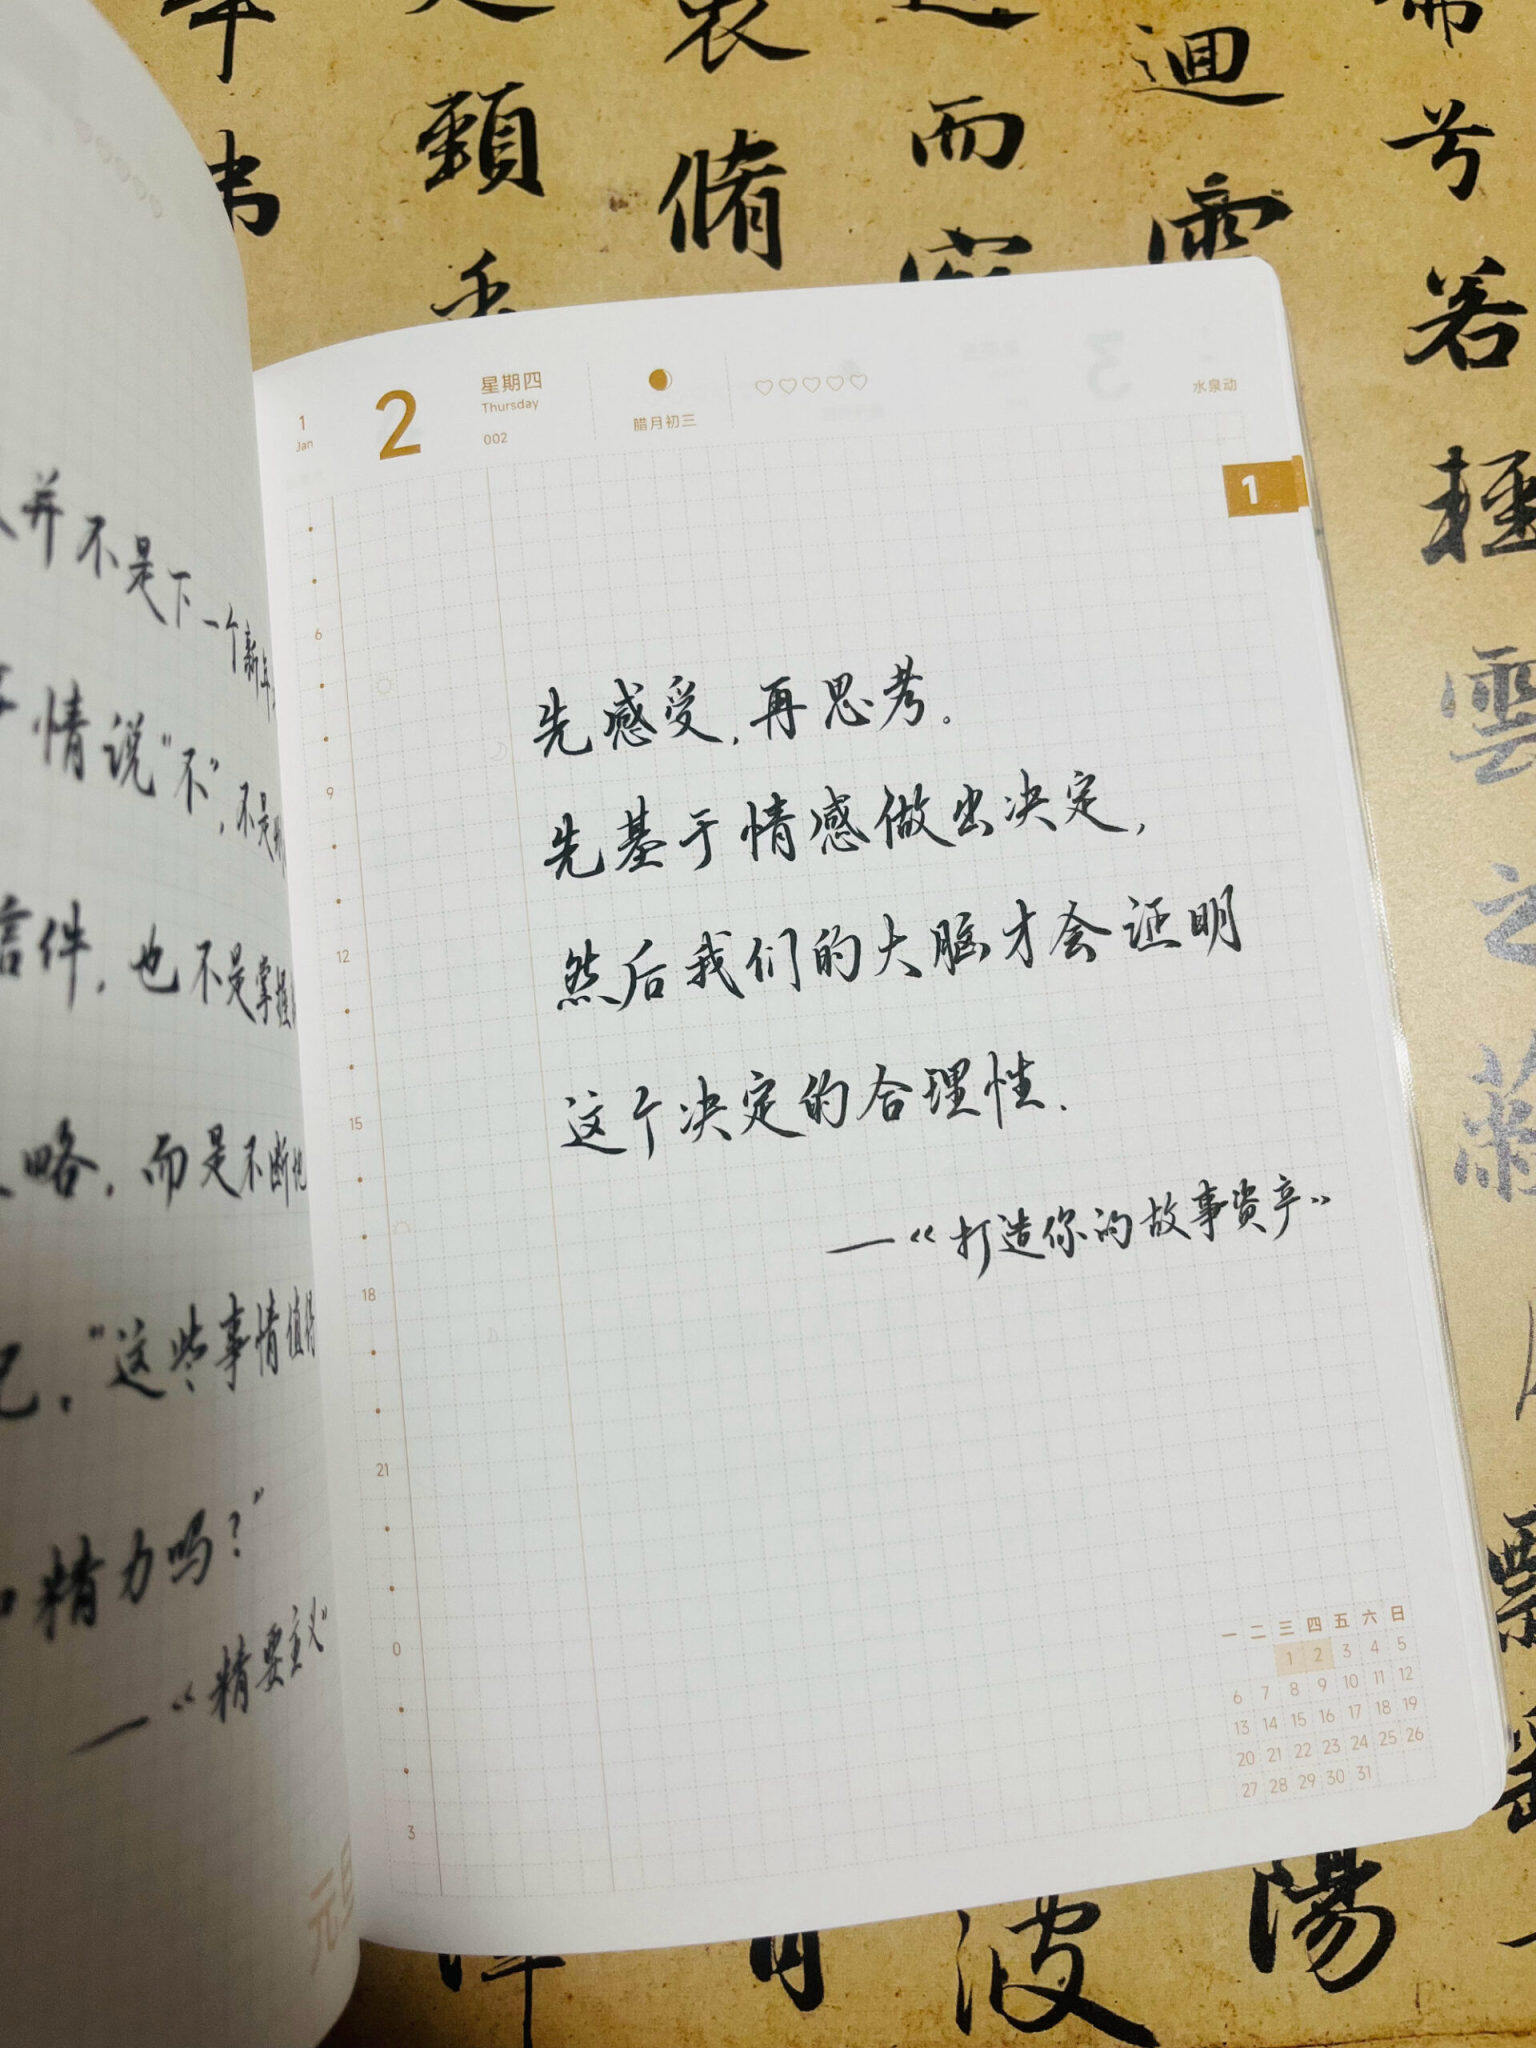 并不是下一个新年
情说“不”，不是
信件，也不是掌握
略，而是不断
，“这些事情值得
精力吗？”
—《精要主义》
元旦
1
Jan
2
星期四
Thursday
002
腊月初三
水泉动
1
6
9
12
15
18
21
0
3
先感受，再思考。
先基于情感做出决定，
然后我们的大脑才会证明
这个决定的合理性.
—《打造你的故事资产》
一 二 三 四 五 六 日
1 2 3 4 5
6 7 8 9 10 11 12
13 14 15 16 17 18 19
20 21 22 23 24 25 26
27 28 29 30 31
迴
兮
若
輕
雲
之
飄
而
脩
頸
秀
波
陽